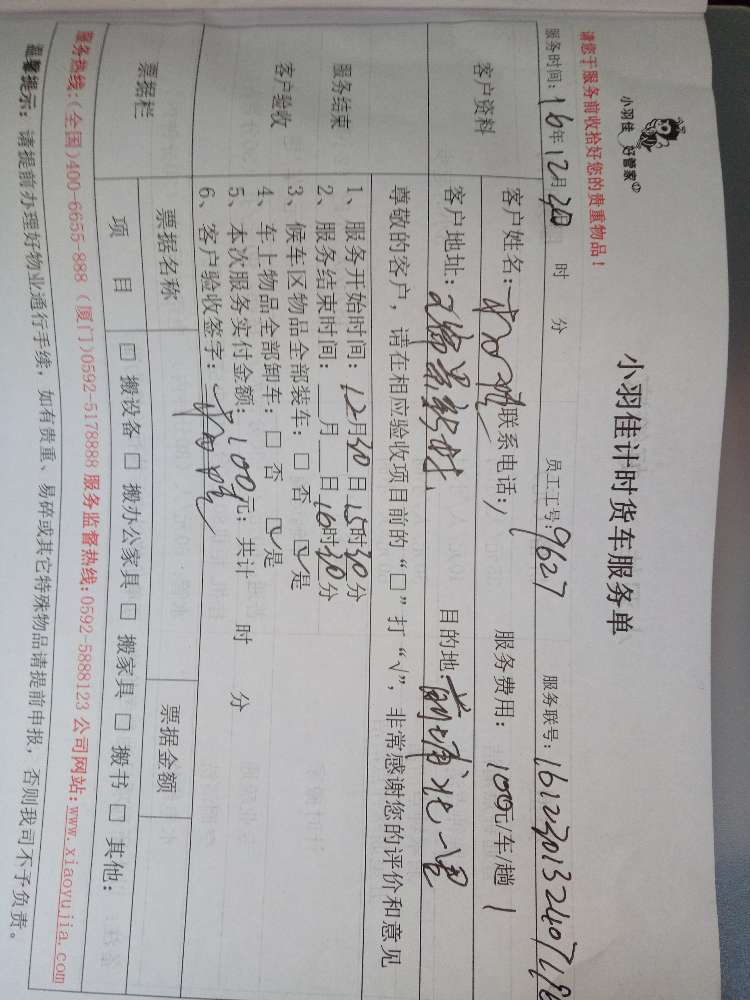 小羽佳 好管家
小羽佳计时货车服务单
请您于服务前收拾好您的贵重物品！
服务时间：16年12月30 时 分 员工工号：9627 服务联号：
客户资料
客户姓名： 联系电话： 服务费用：100元/车/趟 1
客户地址： 目的地：前埔北一里
尊敬的客户，请在相应验收项目前的“□”打“√”，非常感谢您的评价和意见
服务结束
客户验收
1、服务开始时间：12月30日15时30分
2、服务结束时间：＿月＿日16时30分
3、候车区物品全部装车：□ 否 ☑是
4、车上物品全部卸车：□ 否 ☑是
5、本次服务实付金额：100元；共计 时 分
6、客户验收签字：
票据栏
票据名称 票据金额
项 目 □ 搬设备 □ 搬办公家具 □ 搬家具 □ 搬书 □ 其他：
服务热线：(全国)400-6655-888 (厦门)0592-5178888 服务监督热线：0592-5888123 公司网站：www.xiaoyujia.com
温馨提示：请提前办理好物业通行手续，如有贵重、易碎或其它特殊物品请提前申报，否则我司不予负责。